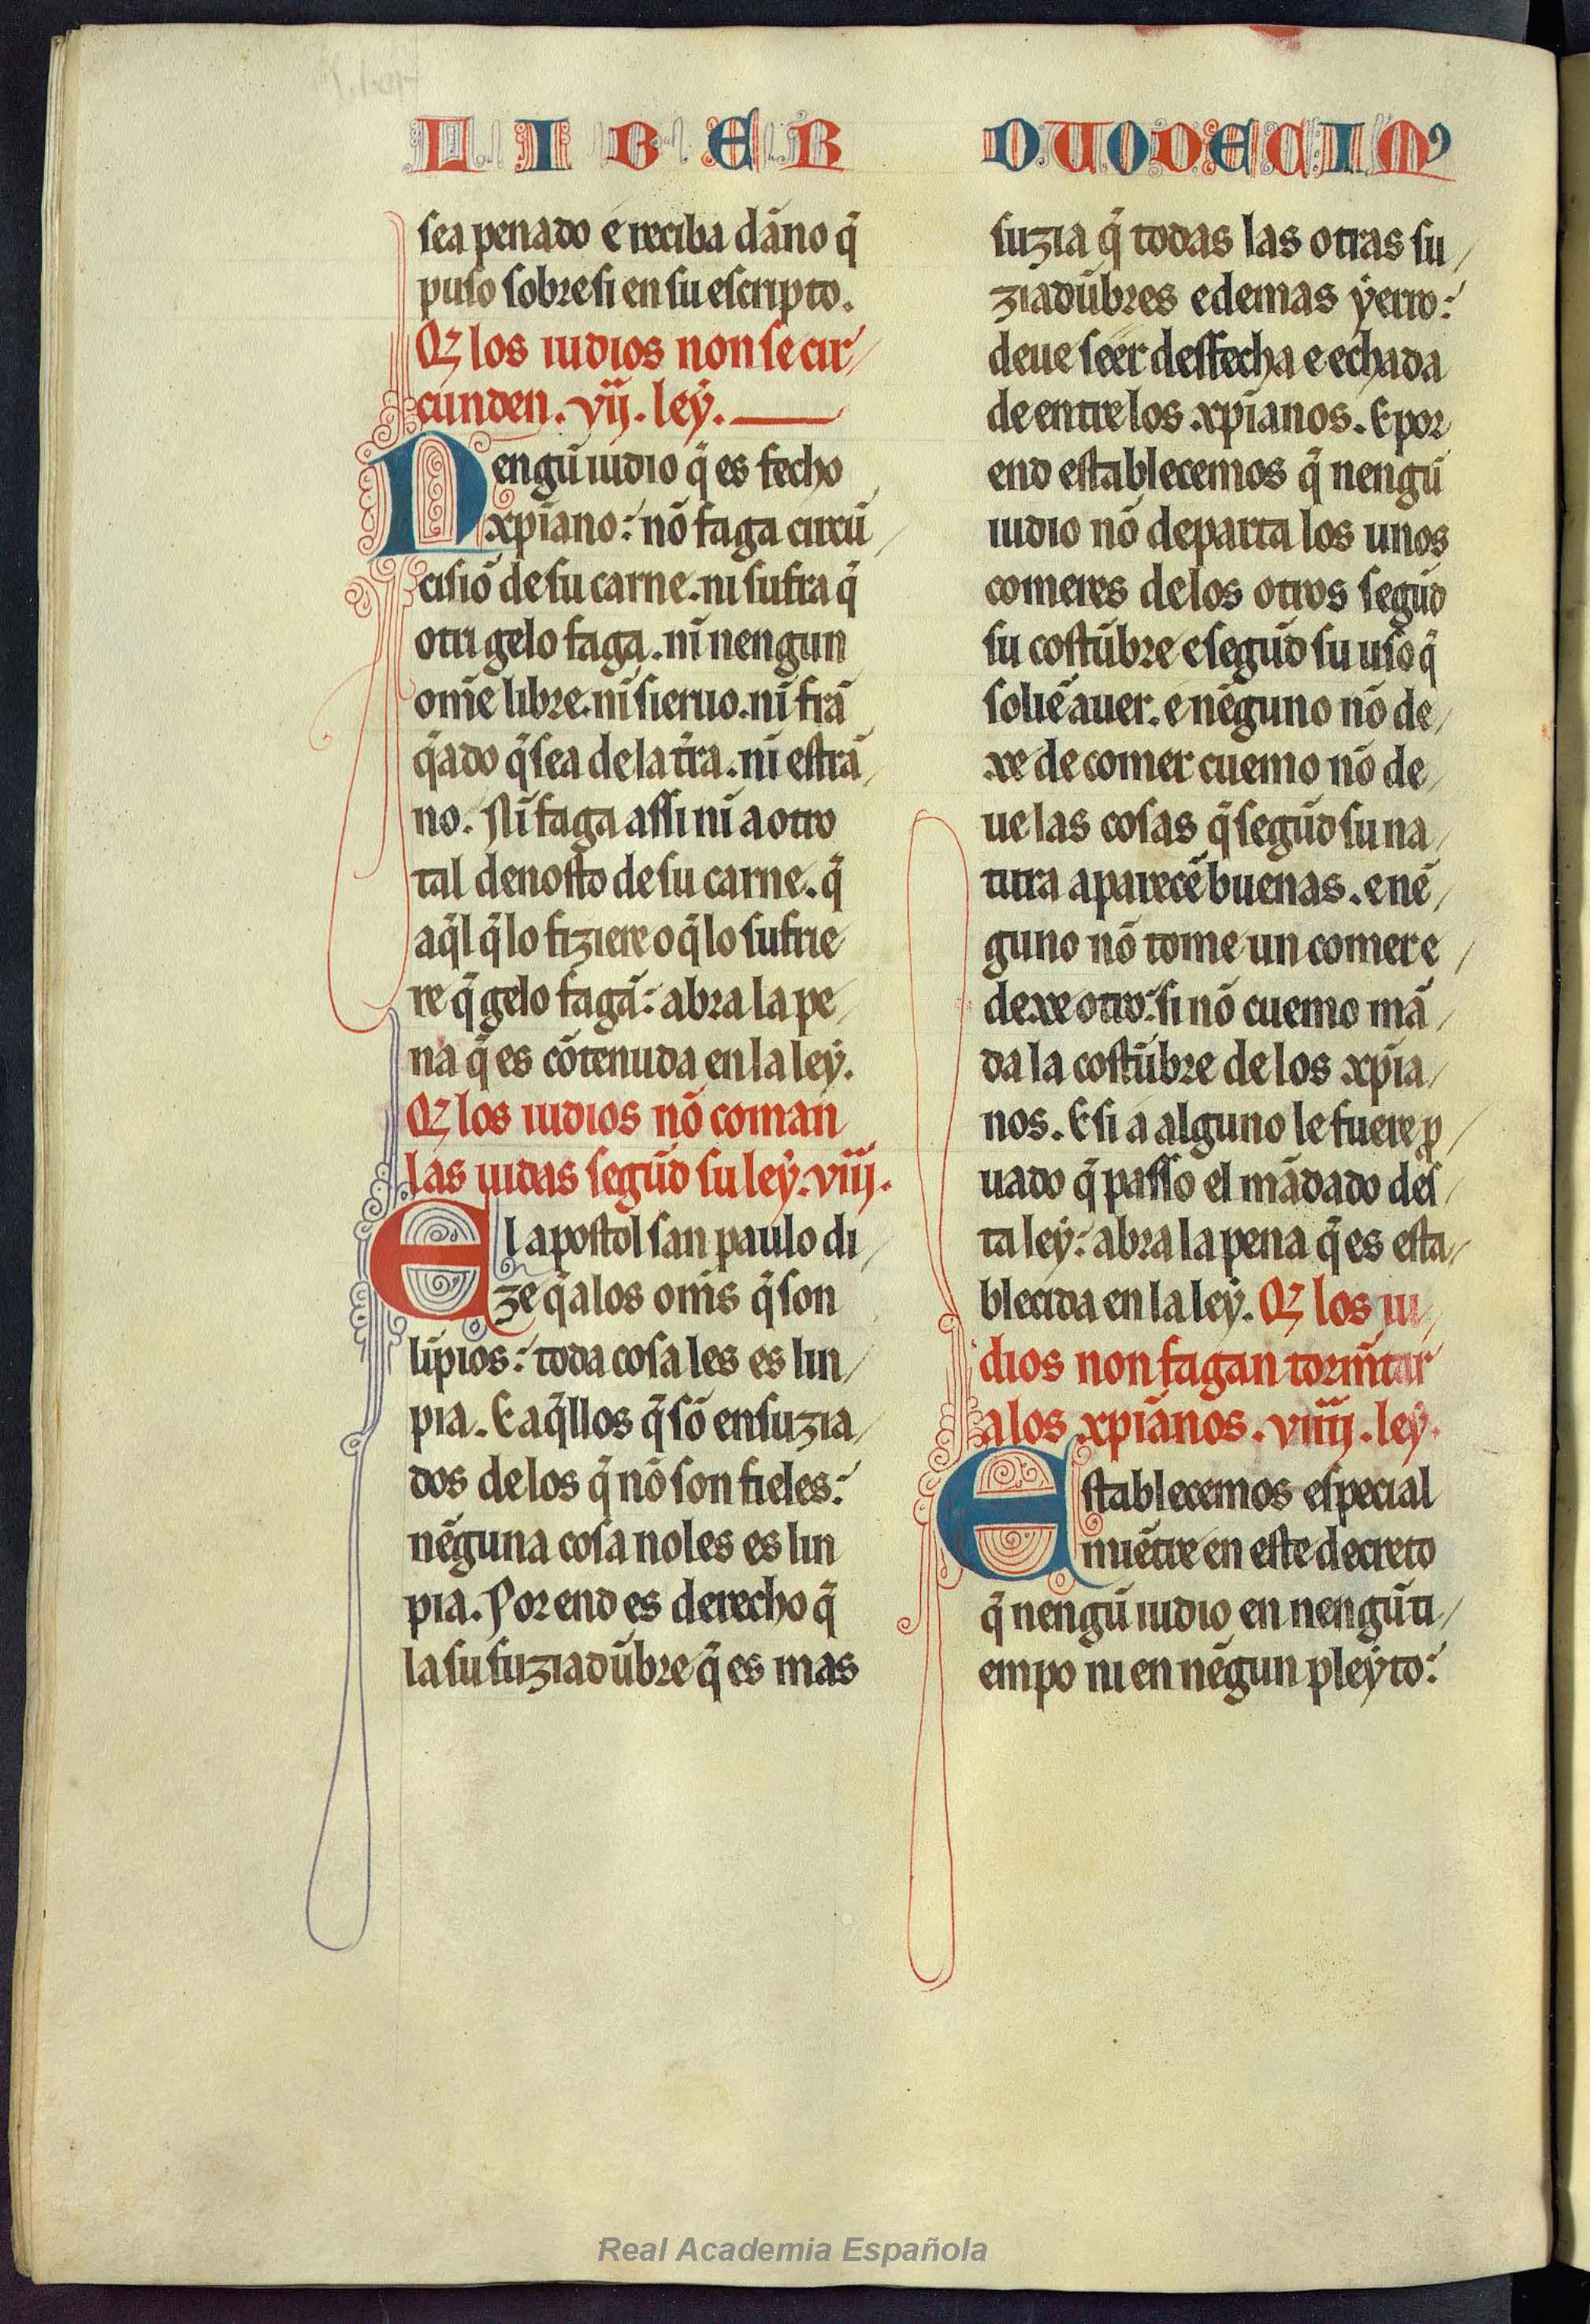 LIBER DUODECIM⁹
sea penado e reciba dãno q̃
puso sobresi en su escripto.
Q̃ los iudios non se cir/
cunden. vij. ley.
Nengũ iudio q̃ es fecho
xp̃iano: nõ faga circũ/
cisiõ de su carne. ni sufra q̃
otri gelo faga. nĩ nengun
om̃e libre. nĩ sieruo. nĩ frã
q̃ado q̃ sea de la tr̃ra. nĩ estrã/
no. Nĩ faga assi nĩ a otro
tal denosto de su carne. q̃
aq̃l q̃ lo fiziere o q̃ lo sufrie
re q̃ gelo fagã: abra la pe/
na q̃ es cõtenuda en la ley.
Q̃ los iudios nõ coman
las uidas segũd su ley. viij.
El apostol san paulo di/
ze q̃ a los om̃s q̃ son
lĩpios: toda cosa les es lin/
pia. E aq̃llos q̃ sõ ensuzia/
dos de los q̃ nõ son fieles:
nẽguna cosa no les es lin
pia. Por end es derecho q̃
la su suziadũbre q̃ es mas
suzia q̃ todas las otras su/
ziadũbres e demas yerro:
deue seer desfecha e echada
de entre los xp̃ianos. E por
end establecemos q̃ nengũ
iudio nõ departa los unos
comeres de los otros segũd
su costũbre e segũd su uso q̃
soliẽ auer. e nẽguno nõ de/
xe de comer cuemo nõ de/
ue las cosas q̃ segũd su na/
tura aparecẽ buenas. e nẽ/
guno nõ tome un comer e/
dexe otro: si nõ cuemo mã/
da la costũbre de los xp̃ia/
nos. E si a alguno le fuere ꝓ/
uado q̃ passo el mãdado des/
ta ley: abra la pena q̃ es esta/
blecida en la ley. Q̃ los iu/
dios non fagan torm̃tar
a los xp̃ianos. viiij. ley.
Establecemos especial
mẽtre en este decreto
q̃ nengũ iudio en nengũ ti/
empo ni en nẽgun pleyto:
Real Academia Española